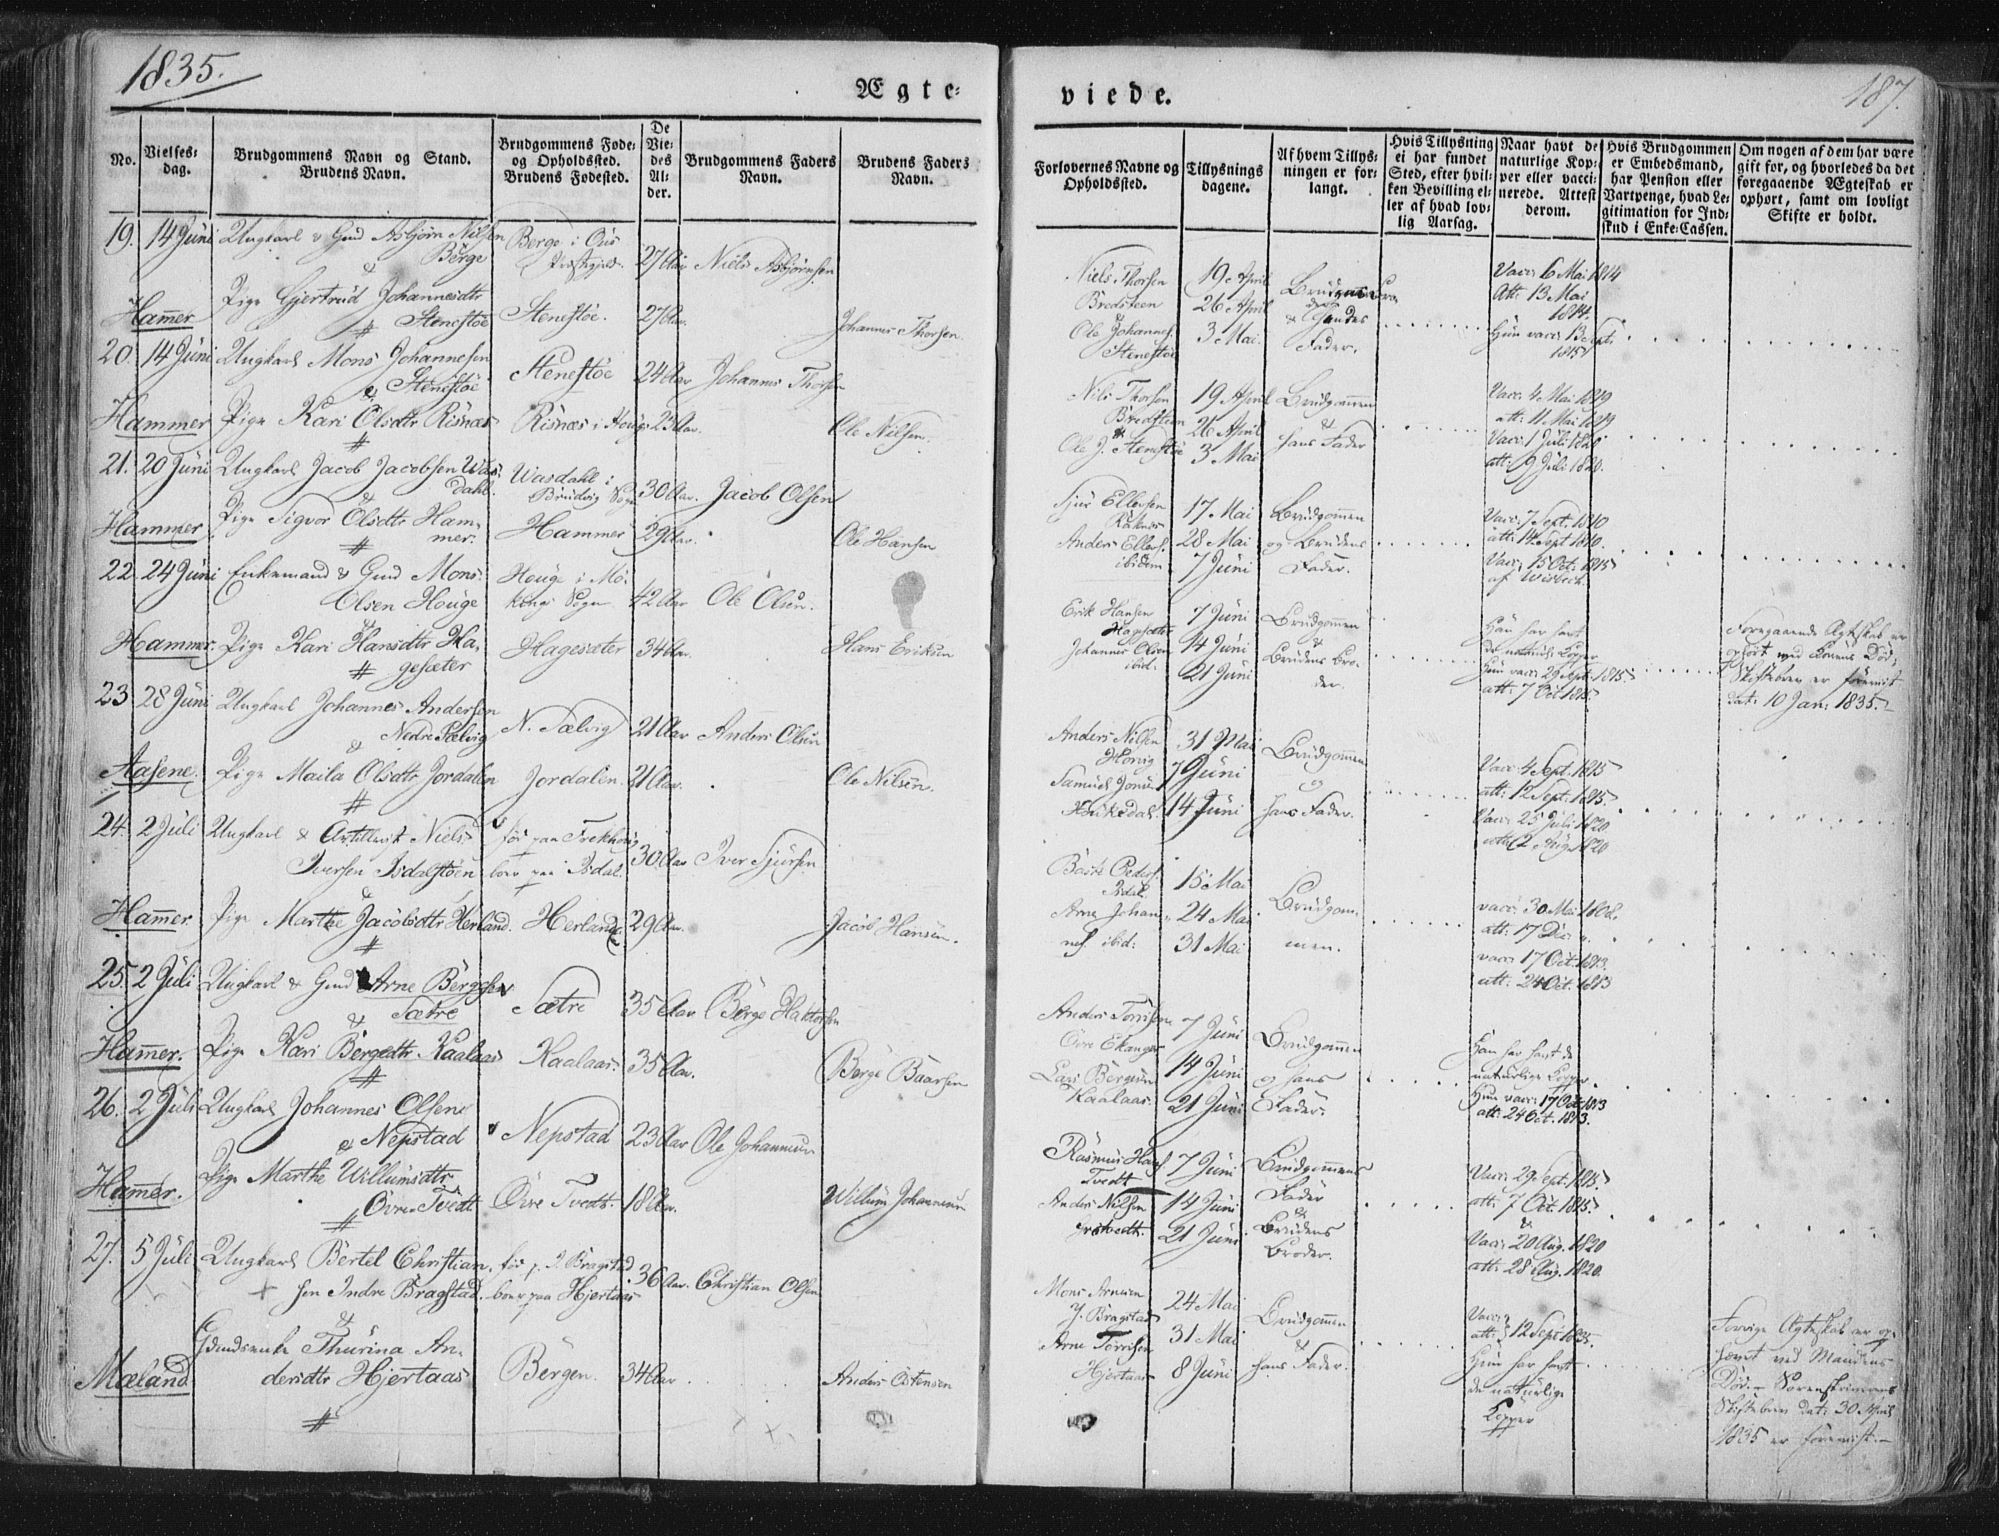 1835.
Ægte-
viede.
187.
No.
Vielses-
dag.
Brudgommens Navn og Stand.
Brudens Navn.
Brudgommens Føde-
og Opholdssted.
Brudens Fødested.
De
Vie-
des
Al-
der.
Brudgommens Faders
Navn.
Brudens Faders
Navn.
Forlovernes Navne og
Opholdssted.
Tillysnings
dagene.
Af hvem Tillys-
ningen er for-
langt.
Hvis Tillysning
ei har fundet
Sted, efter hvil-
ken Bevilling el-
ler af hvad lov-
lig Aarsag.
Naar havt de
naturlige Kop-
per eller vacci-
nerede. Attest
derom.
Hvis Brudgommen
er Embedsmand,
har Pension eller
Vartpenge, hvad Le-
gitimation for Ind-
skud i Enke-Cassen.
Om nogen af dem har være
gift før, og hvorledes da det
foregaaende Ægteskab er
ophørt, samt om lovligt
Skifte er holdt.
19. 14 Juni Ungkarl & Gmd Asbjørn Nilsen
Børge
&
Berge i Ous
Præstegjeld.
27 Aar Niels Asbjørnsen
Hammer
Pige Gjertrud Johannesdtr
Stenestøe
Stenestøe.
27 Aar.
Johannes Thorsen.
Niels Thorsen
Bredsteen
&
Ole Johannes.
Stenestøe
19 April
26 April
3 Mai.
Brudens Bro
der
& Gmdes
Fader.
Vacc: 6 Mai 1814
Att: 13 Mai
1814.
Hun vacc: 13 Sept.
1815
20. 14 Juni Ungkarl Mons Johannesen
& Stenestøe
Stenestøe 24 Aar Johannes Thorsen
Hammer Pige Kari Olsdtr Risnæs Risnæs i Houg 23 Aar.
Ole Nilsen.
Nils Thorsen
Bredsteen
&
Ole J. Stenestøe
19 April
26 April
3 Mai
Brudgommen
&
hans Fader
Vacc: 4 Mai 1819
att: 11 Mai 1819
Vacc: 1 Juli 1820
att: 9 Juli 1820.
21. 20 Juni Ungkarl Jacob Jacobsen Was-
dahl.
&
Wasdahl i
Brudvig Sogn
30 Aar. Jacob Olsen
Hammer Pige Sigvor Olsdtr Ham-
mer.
Hammer 29 Aar.
Ole Hansen
Sjur Ellevsen
Røknes
Anders Ellevs.
ibidem
17 Mai
28 Mai
7 Juni
Brudgommen
og Brudens
Fader.
Vacc: 7 Sept. 1810
att: 14 Sept 1810.
Vacc: 15 Oct: 1815
af Wisbech.
22. 24 Juni Enkemand & Gmd Mons
Olsen Houge
Houge i Mø-
kings Sogn
42 Aar Ole Olsen.
Hammer. Pige Kari Hansdtr Ha-
gesæter
Hagesæter 34 Aar.
Hans Eriksen
Erik Hansen
Hagesæter
Johannes Olsen
ibid.
7 Juni
14 Juni
21 Juni
Brudgommen
&
Brudens Bro-
der.
Han har havt
de naturlige Kopper
Hun vacc: 29 Sept. 1815.
att: 7 Oct 1815.
Foregaaende Ægteskab er
ophørt ved Konens Død;
Skiftebrev er foreviist
dat: 10 Jan: 1835.
23 28 Juni Ungkarl Johannes Andersen
Nedre Sælvig
&
N. Sælvig 21 Aar Anders Olsen
Aasene. Pige Maila Olsdtr Jordalen Jordalen. 21 Aar.
Ole Nilsen.
Anders Nilsen
Hopnig
Samuel Jonsen
Houkedal.
31 Mai
7 Juni
14 Juni
Brudgommen
og
hans Fader.
Vacc 4 Sept. 1815
att: 12 Sept. 1815.
Vacc: 25 Juli 1820
att 2 Aug. 1820
24. 2 Juli Ungkarl & Artillerist Niels
Iversen Isdalstøen
&
før paa Trekhoug
boer paa Isdal.
30 Aar Iver Sjursen
Hammer. Pige Marthe Jacobsdtr Herland. Herland 29 Aar.
Jacob Hansen.
Baard Peders.
Isdal
Arne Johan-
nes. ibid:
15 Mai
24 Mai
31 Mai
Brudgom-
men.
vacc: 30 Mai 1808.
att: 17 Dec:
vacc: 17 Oct. 1813.
att: 24 Oct. 1813
25. 2 Juli Ungkarl & Gmd Arne Børgesen
& Sætre
Sætre 35 Aar. Børge Haktorsen
Hammer. Pige Kari Børgedtr Kaalaas Kaalaas. 35 Aar.
Børge Baarsen
Anders Torrisen
Øvre Ekanger
Lars Børgesen
Kaalaas.
7 Juni
14 Juni
21 Juni
Brudgommen
og hans
Fader.
Han har havt de
naturlige Kopper.
Hun vacc: 17 Oct 1813
att: 24 Oct. 1813.
26. 2 Juli Ungkarl Johannes Olsen
& Nepstad
Nepstad 23 Aar Ole Johannesen
Hammer. Pige Marthe Willumsdtr
Øvre Tvedt
Øvre Tvedt. 18 Aar.
Willum Johannesen
Rasmus Hans.
Tvedt
Anders Nilsen
7 Juni
14 Juni
21 Juni
Brudgommens
Fader
&
Brudens
Broder.
Vacc: 29 Sept. 1815.
att: 7 Oct. 1815
&
Vacc: 20 Aug. 1820
att: 28 Aug. 1820.
27. 5 Juli Ungkarl Bertel Christian-
sen Indre Bragstad.
&
før p. I. Bragstad
boer paa Hjertaas
36 Aar. Christian Olsen
Mæland
Gmdsenke Thurina An-
dersdtr Hjertaas
Bergen. 34 Aar.
Anders Ostensen
Mons Arnesen
Y. Bragstad
Arne Torrisen
Hjertaas
24 Mai
31 Mai
8 Juni
Brudgommen
&
hans Fader.
Vacc:
att: 12 Sept 1835.
Hun har havt
de naturlige
Kopper
Forrige Ægteskab er op-
hævet ved Mandens
Død. Sorenskriverens
Skiftebrev dat: 30 April
1835 er foreviist.